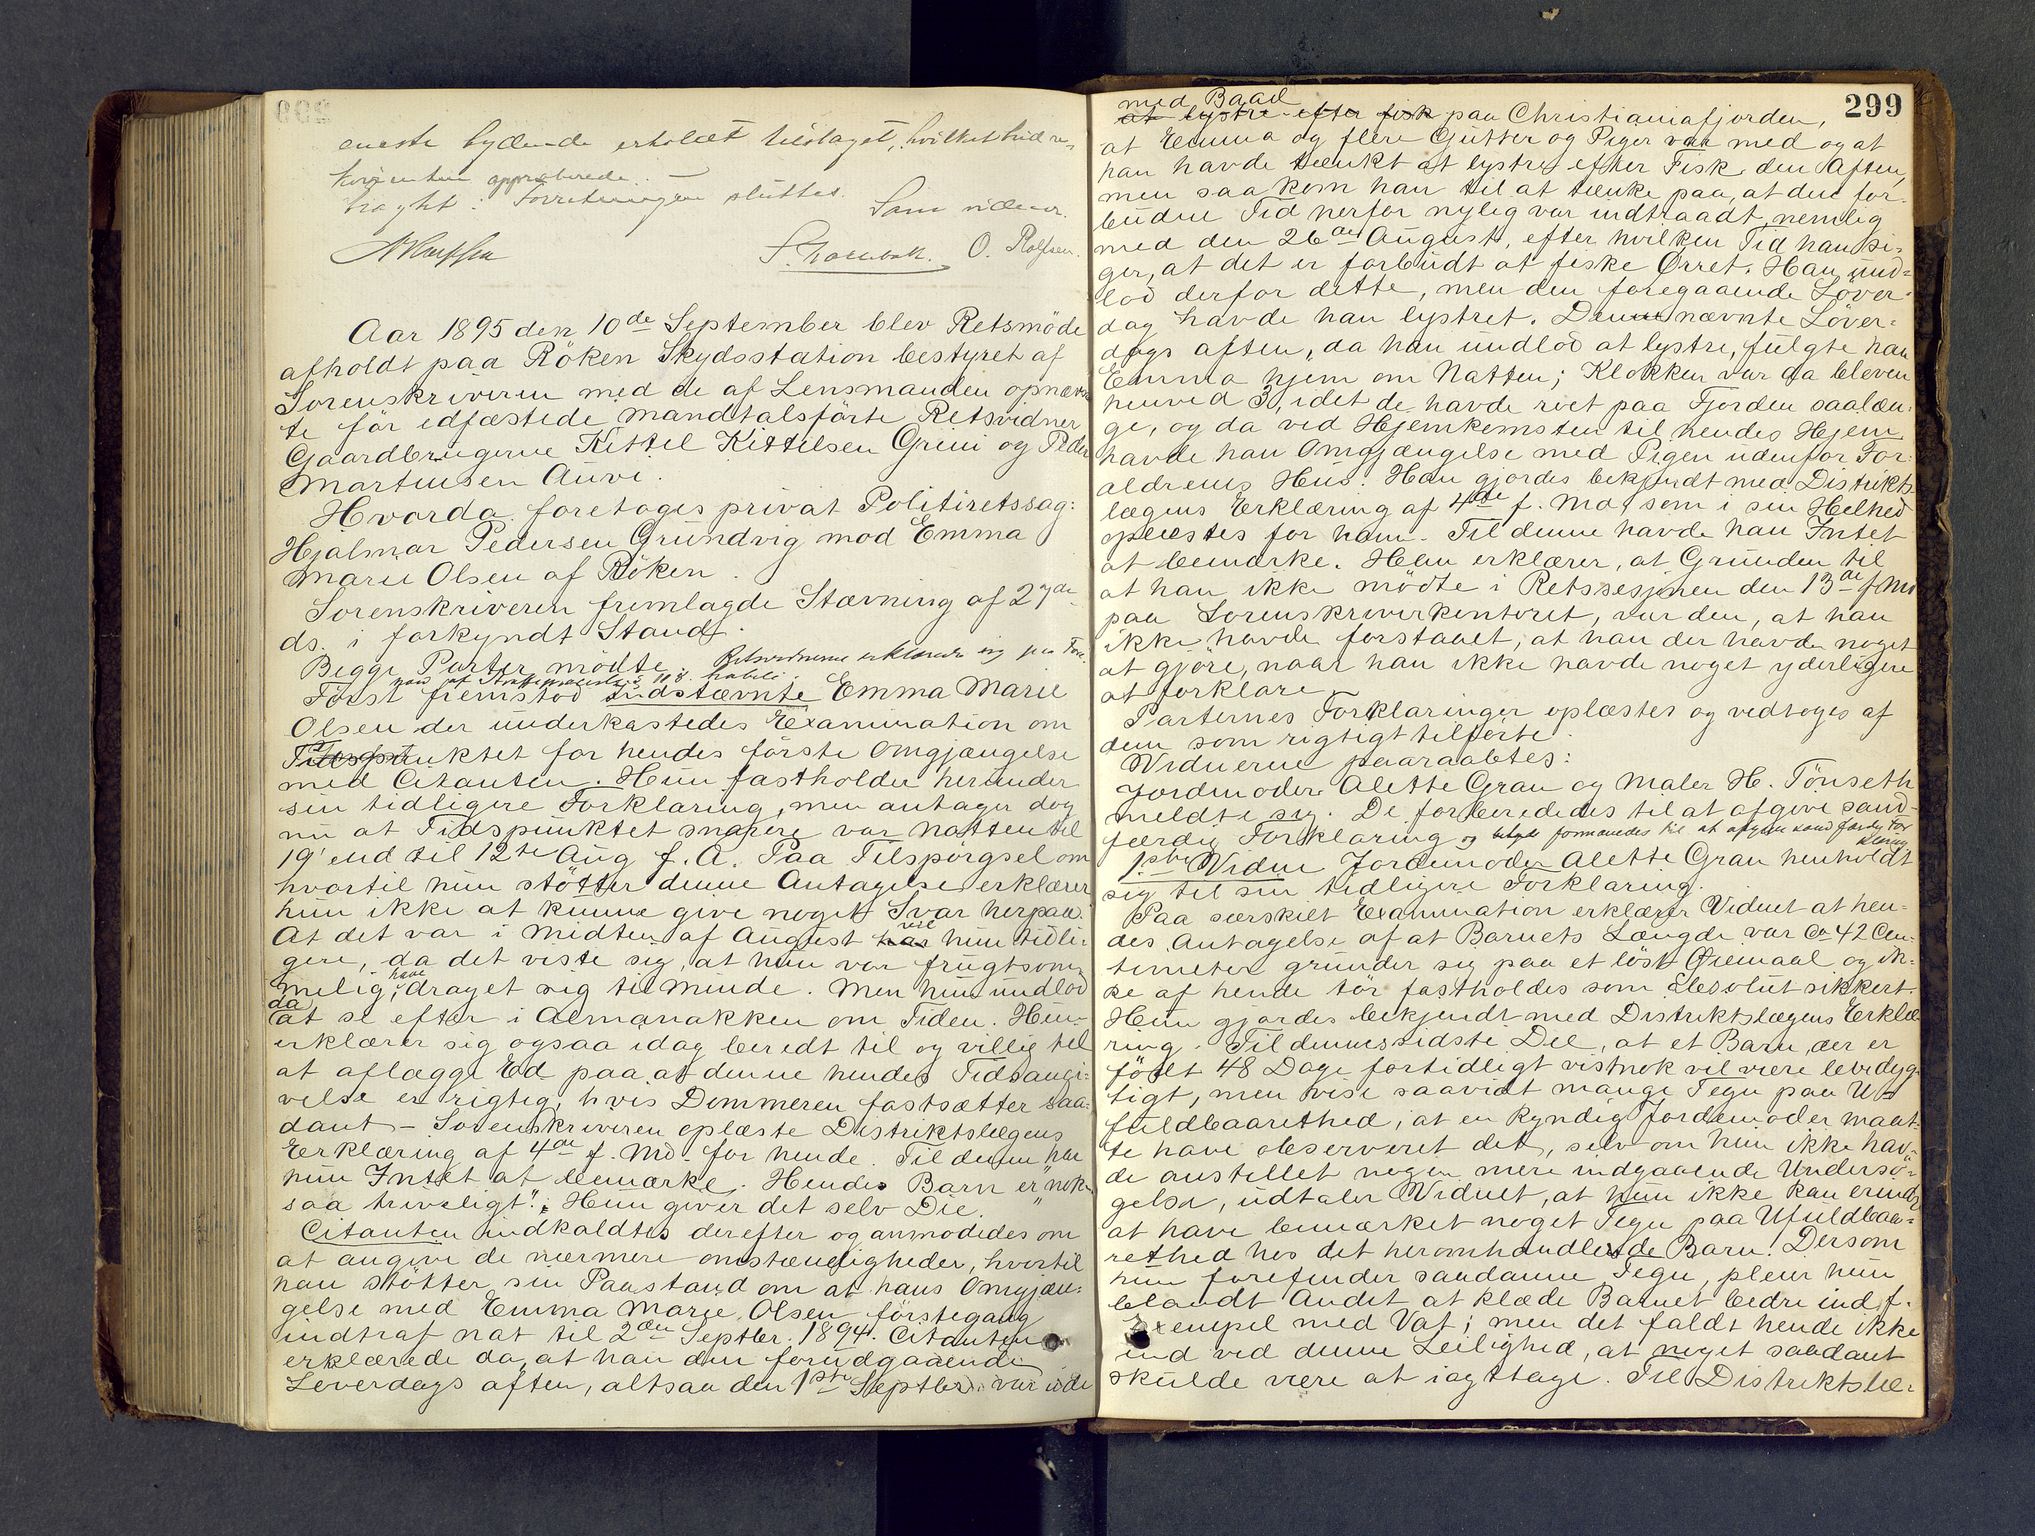 eneste bydende erholdt tilslaget, hvilket hidre,
kvirenten approberede. —
Forretningen sluttet.
Som vidner.
O. Rolfsen.
Aar 1895 den 10de September blev Retsmöde
afholdt paa Röken Skydsstation bestyret af
Sorenskriveren med de af Lensmanden opnævn
te før edfæstede mandtalsførte Retsvidner
Gaardbrugerne Kittil Kittilsen Grini og Peder
Martinsen Auvi.
Hvorda foretoges privat Politiretssag:
Hjalmar Pedersen Grundvig mod Emma
Marie Olsen af Röken.
Sorenskriveren fremlagde Stævning af 2 den
ds. i forkyndt Stand.
Begge Parter mödte. Retsvidnerne erklærede sig paa For-
Först fremstod Indstævnte Emma Marie
Olsen der underkastedes Examination om
Tidspunktet for hendes förste Omgjængelse
med Citanten. Hun fastholder herunder
sin tidligere Forklaring, men antager dog
nu at Tidspunktet snarere var Natten til
19' end til 12te Aug f. A. Paa Tilspörgsel om
hvortil hun stötter denne Antagelse erklærer
hun ikke at kunne give noget Svar herpaa.
At det var i Midten af August vil hun tidli-
gere, da det viste sig, at hun var frugtsom-
melig, have draget sig til minde. Men hun undlod
da at se efter i Almanakken om Tiden. Hun
erklærer sig ogsaa idag beredt til og villig til
at aflægge Ed paa at denne hendes Tidsangi-
velse er rigtig, hvis Dommeren fastsætter saa-
dant – Sorenskriveren oplæste Distriktslægens
Erklæring af 4de f. Md for hende. Til denne har
hun Intet at bemærke. Hendes Barn er "nok-
saa triveligt". Hun giver det selv Die.
Citanten indkaldtes derefter og anmodedes om
at angive de nærmere omstændigheder, hvortil
han stötter sin Paastand om at hans Omgjæn-
gelse med Emma Marie Olsen förstegang
indtraf nat til 2den Septbr. 1894. Citanten
erklærede da, at han den forudgaaende
Löverdags aften, altsaa den 1ste Septbr. var ude
299
med Baad
at lystre efter fisk paa Christianiafjorden,
at Emma og flere Gutter og Piger var med og at
han havde tænkt at lystre efter Fisk den Aften,
men saa kom han til at tænke paa, at den for-
budne Tid nerfor nylig var indtraadt, nemlig
med den 26de August, efter hvilken Tid han si-
ger, at det er forbudt at fiske Ørret. Han und-
lod derfor dette, men den foregaaende Löver-
dag havde han lystret. Den nævnte Löver-
dags aften, da han undlod at lystre, fulgte han
Emma hjem om Natten; Klokken var da bleven
henved 3, idet de havde roet paa Fjorden saalæn-
ge, og da ved Hjemkomsten til hendes Hjem
havde han Omgjængelse med Pigen udenfor For-
ældrenes Hus. Han gjordes bekjendt med Distrikts-
lægens Erklæring af 4de f. Md, som i sin Helhed
oplæstes for ham. Til denne havde han Intet
at bemærke. Han erklærer, at Grunden til
at han ikke mödte i Retssesjonen den 13de f. Md
paa Sorenskriverkontoret, var den, at han
ikke havde forstaaet, at han der havde noget
at gjöre, naar han ikke havde noget yderligere
at forklare.
Parternes Forklaringer oplæstes og vedtoges af
dem som rigtigt tilförte.
Vidnerne paaraabtes:
Jordmoder Alette Gran og Maler H. Tönseth
meldte sig. De forberededes til at afgive sand-
færdig Forklaring og formanedes til at afgive sandfærdig For
klaring
1ste Vidne Jordemoder Alette Gran henholdt
sig til sin tidligere Forklaring.
Paa særskilt Examination erklærer Vidnet at hen-
des Antagelse af at Barnets Længde var Ca 42 Cen-
timeter grunder sig paa et löst Øiemaal og ik-
ke af hende tör fastholdes som absolut sikkert.
Hun gjordes bekjendt med Distriktslægens Erklæ-
ring. Til dennes sidste Del, at et Barn, der er
födt 48 Dage fortidligt vistnok vil være levedyg-
tigt, men vise saavidt mange Tegn paa U-
fuldbaarethed, at en kyndig Jordemoder maat-
te have observeret det, selv om hun ikke hav-
de anstillet nogen mere indgaaende Undersö-
gelse, udtaler Vidnet, at hun ikke kan erindre
at have bemærket noget Tegn paa Ufuldbaa-
rethed hos det heromhandlede Barn. Dersom
hun forefinder saadanne Tegn, pleier hun
blandt Andet at klæde Barnet bedre ind f.
Exempel med Vat; men det faldt hende ikke
ind ved denne Leilighed, at noget saadant
skulde være at iagttage. Til Distriktslæ-